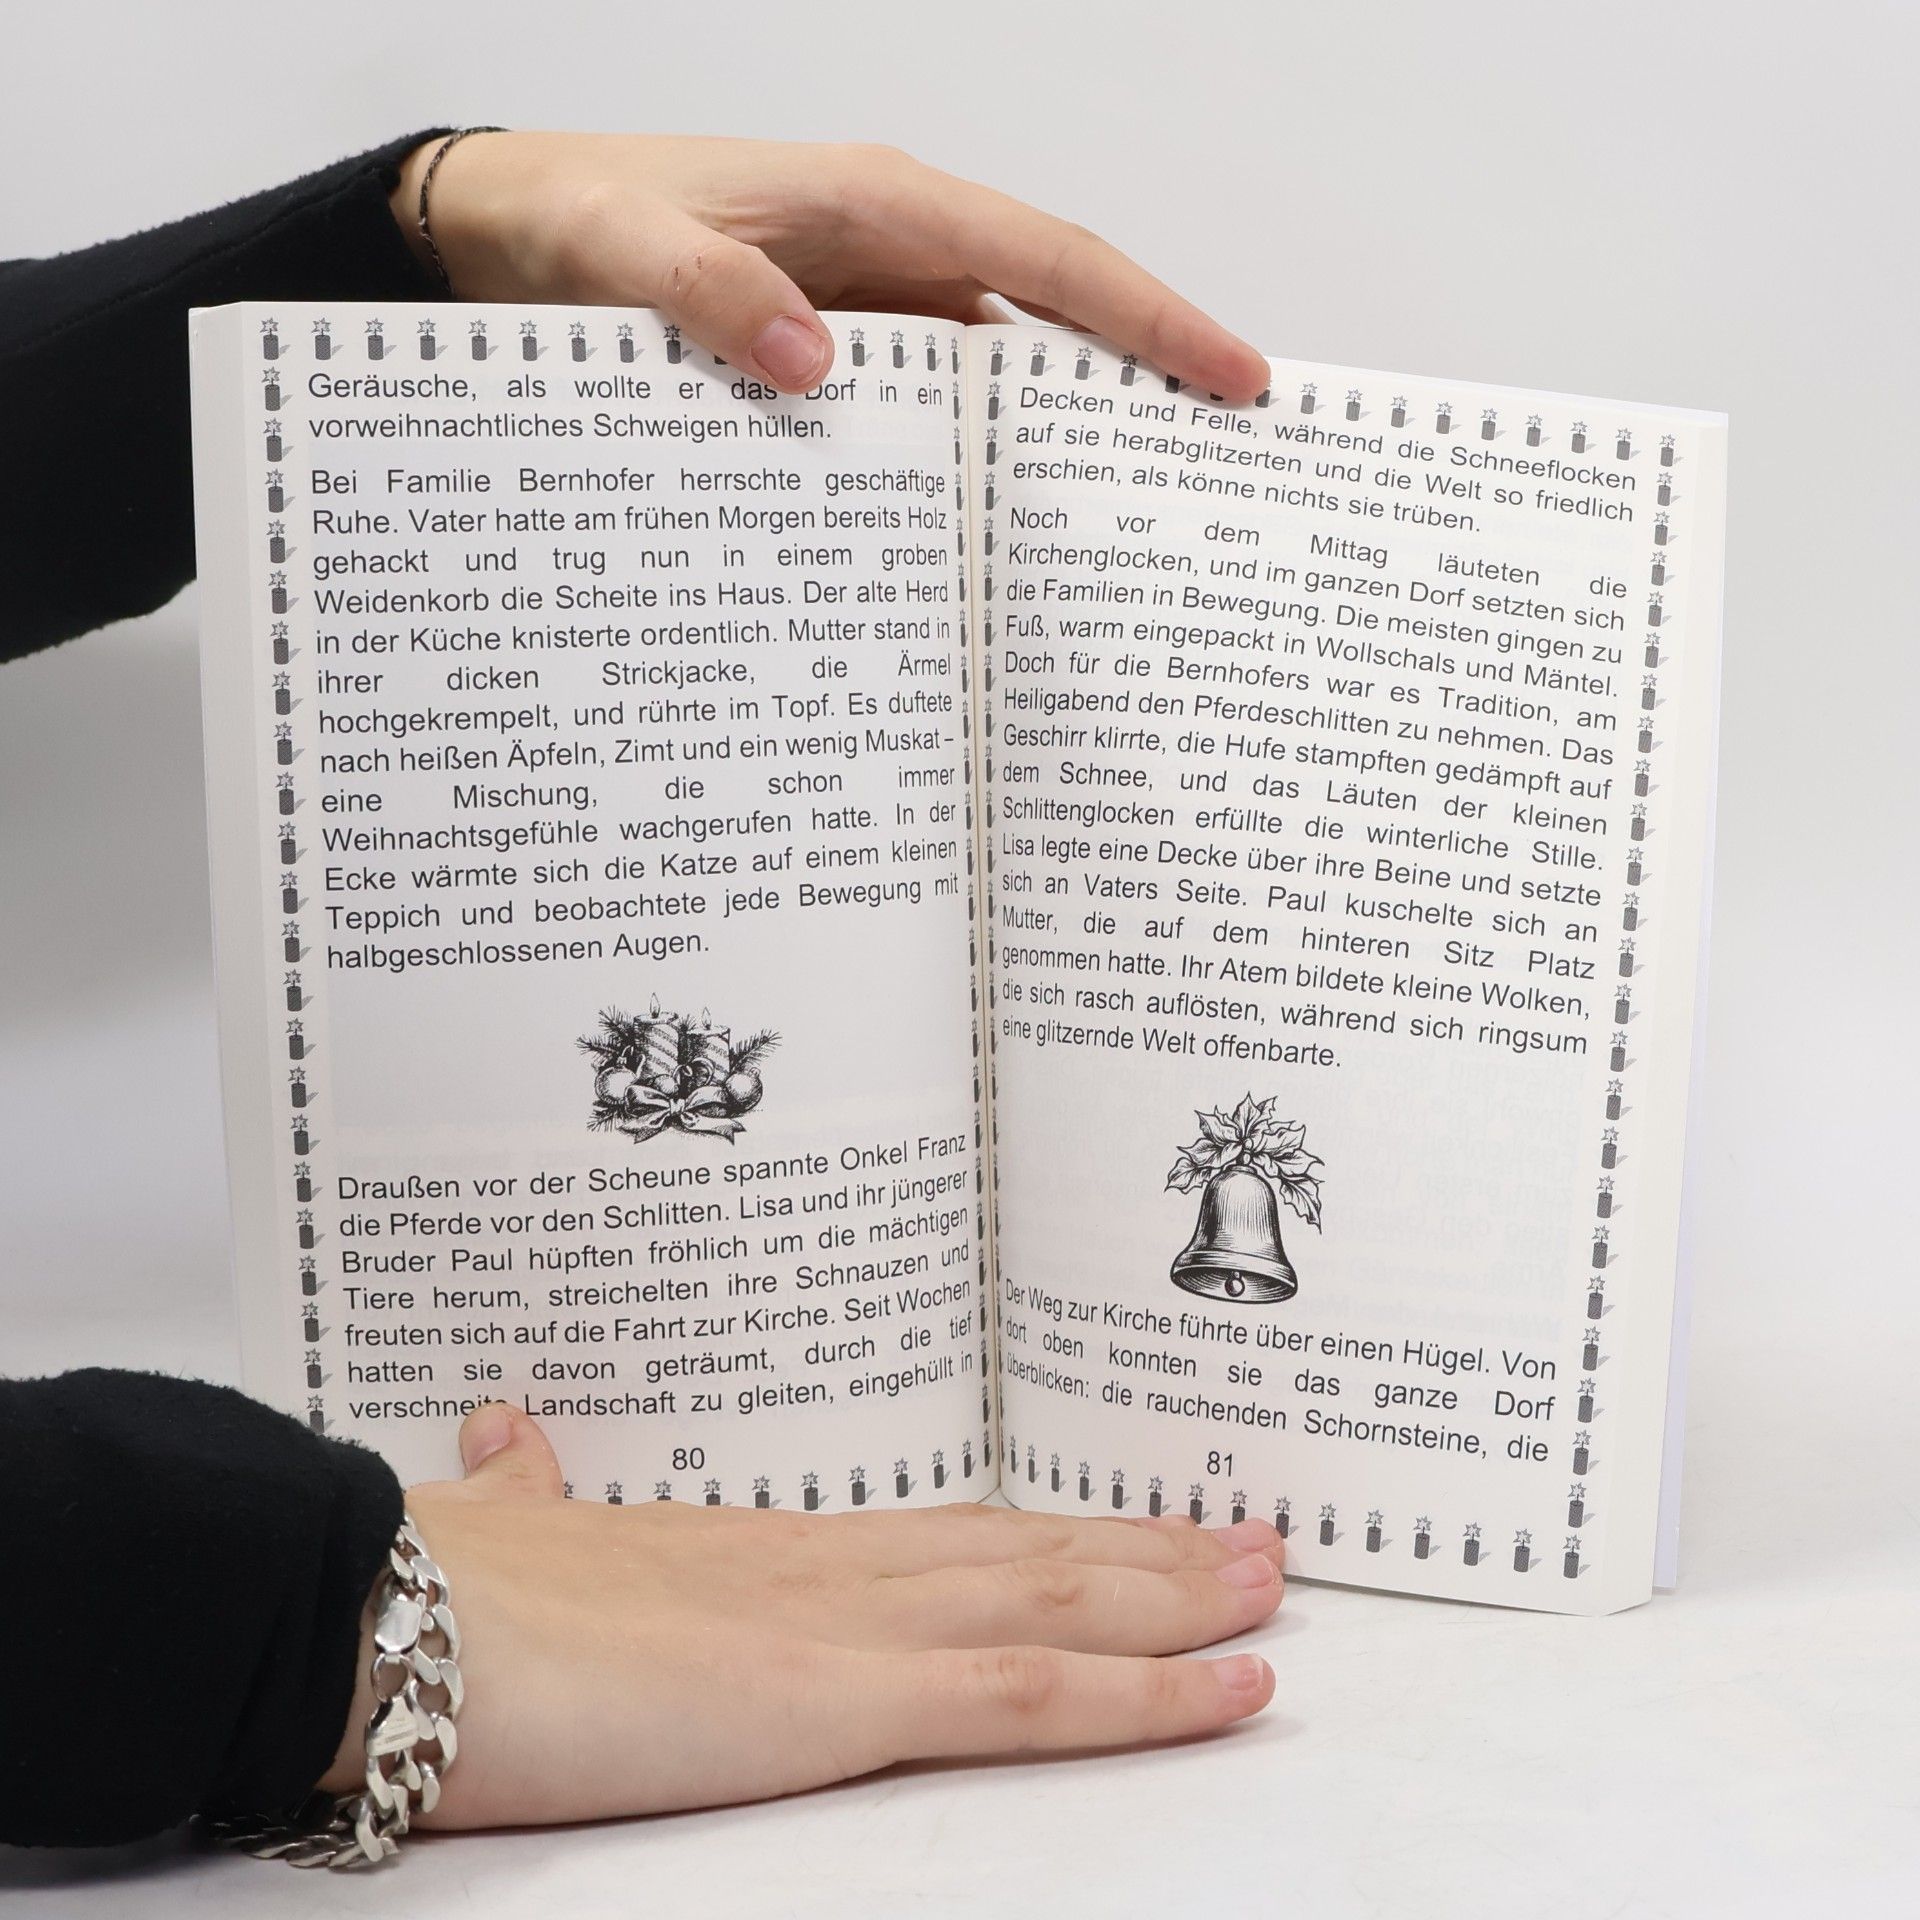 Geräusche, als wollte er das Dorf in ein
vorweihnachtliches Schweigen hüllen.
Bei Familie Bernhofer herrschte geschäftige
Ruhe. Vater hatte am frühen Morgen bereits Holz
gehackt und trug nun in einem groben
Weidenkorb die Scheite ins Haus. Der alte Herd
in der Küche knisterte ordentlich. Mutter stand in
ihrer dicken Strickjacke, die Ärmel
hochgekrempelt, und rührte im Topf. Es duftete
nach heißen Äpfeln, Zimt und ein wenig Muskat –
eine Mischung, die schon immer
Weihnachtsgefühle wachgerufen hatte. In der
Ecke wärmte sich die Katze auf einem kleinen
Teppich und beobachtete jede Bewegung mit
halbgeschlossenen Augen.
Draußen vor der Scheune spannte Onkel Franz
die Pferde vor den Schlitten. Lisa und ihr jüngerer
Bruder Paul hüpften fröhlich um die mächtigen
Tiere herum, streichelten ihre Schnauzen und
freuten sich auf die Fahrt zur Kirche. Seit Wochen
hatten sie davon geträumt, durch die tief
verschneite Landschaft zu gleiten, eingehüllt in
80
Decken und Felle, während die Schneeflocken
auf sie herabglitzerten und die Welt so friedlich
erschien, als könne nichts sie trüben.
Noch vor dem Mittag läuteten die
Kirchenglocken, und im ganzen Dorf setzten sich
die Familien in Bewegung. Die meisten gingen zu
Fuß, warm eingepackt in Wollschals und Mäntel.
Doch für die Bernhofers war es Tradition, am
Heiligabend den Pferdeschlitten zu nehmen. Das
Geschirr klirrte, die Hufe stampften gedämpft auf
dem Schnee, und das Läuten der kleinen
Schlittenglocken erfüllte die winterliche Stille.
Lisa legte eine Decke über ihre Beine und setzte
sich an Vaters Seite. Paul kuschelte sich an
Mutter, die auf dem hinteren Sitz Platz
genommen hatte. Ihr Atem bildete kleine Wolken,
die sich rasch auflösten, während sich ringsum
eine glitzernde Welt offenbarte.
Der Weg zur Kirche führte über einen Hügel. Von
dort oben konnten sie das ganze Dorf
überblicken: die rauchenden Schornsteine, die
81